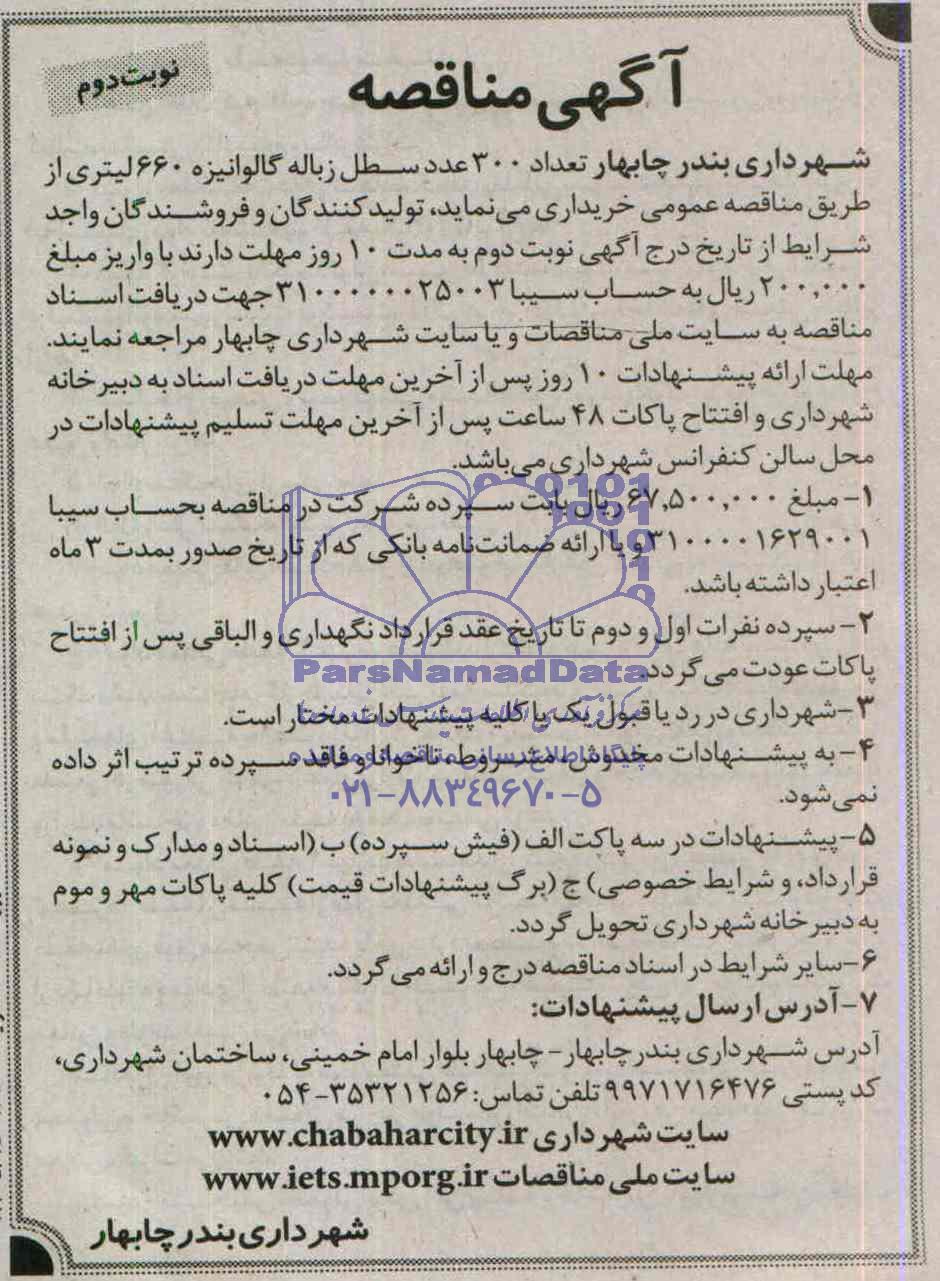 آگهی مناقصه
نوبت دوم
شهرداری بندر چابهار تعداد ۳۰۰ عدد سطل زباله گالوانیزه ۶۶۰ لیتری از
طریق مناقصه عمومی خریداری می‌نماید، تولیدکنندگان و فروشندگان واجد
شرایط از تاریخ درج آگهی نوبت دوم به مدت ۱۰ روز مهلت دارند با واریز مبلغ
۲۰۰,۰۰۰ ریال به حساب سیبا ۳۱۰۰۰۰۰۰۲۵۰۰۳ جهت دریافت اسناد
مناقصه به سایت ملی مناقصات و یا سایت شهرداری چابهار مراجعه نمایند.
مهلت ارائه پیشنهادات ۱۰ روز پس از آخرین مهلت دریافت اسناد به دبیرخانه
شهرداری و افتتاح پاکات ۴۸ ساعت پس از آخرین مهلت تسلیم پیشنهادات در
محل سالن کنفرانس شهرداری می‌باشد.
۱- مبلغ ۶۷,۵۰۰,۰۰۰ ریال بابت سپرده شرکت در مناقصه بحساب سیبا
۳۱۰۰۰۰۱۶۲۹۰۰۱ و یا ارائه ضمانت‌نامه بانکی که از تاریخ صدور بمدت ۳ ماه
اعتبار داشته باشد.
۲- سپرده نفرات اول و دوم تا تاریخ عقد قرارداد نگهداری و الباقی پس از افتتاح
پاکات عودت می‌گردد.
ParsNamadData
۳- شهرداری در رد یا قبول یک یا کلیه پیشنهادات مختار است.
۴- به پیشنهادات مخدوش، مشروط، ناخوانا و فاقد سپرده ترتیب اثر داده
نمی‌شود.
۰۲۱-۸۸۳۴۹۶۷۰-۵
۵- پیشنهادات در سه پاکت الف (فیش سپرده) ب (اسناد و مدارک و نمونه
قرارداد، و شرایط خصوصی) ج (برگ پیشنهادات قیمت) کلیه پاکات مهر و موم
به دبیرخانه شهرداری تحویل گردد.
۶- سایر شرایط در اسناد مناقصه درج و ارائه می‌گردد.
۷- آدرس ارسال پیشنهادات:
آدرس شهرداری بندرچابهار - چابهار بلوار امام خمینی، ساختمان شهرداری،
کد پستی ۹۹۷۱۷۱۶۴۷۶ تلفن تماس: ۳۵۳۲۱۲۵۶-۰۵۴
سایت شهرداری www.chabaharcity.ir
سایت ملی مناقصات www.iets.mporg.ir
شهرداری بندر چابهار